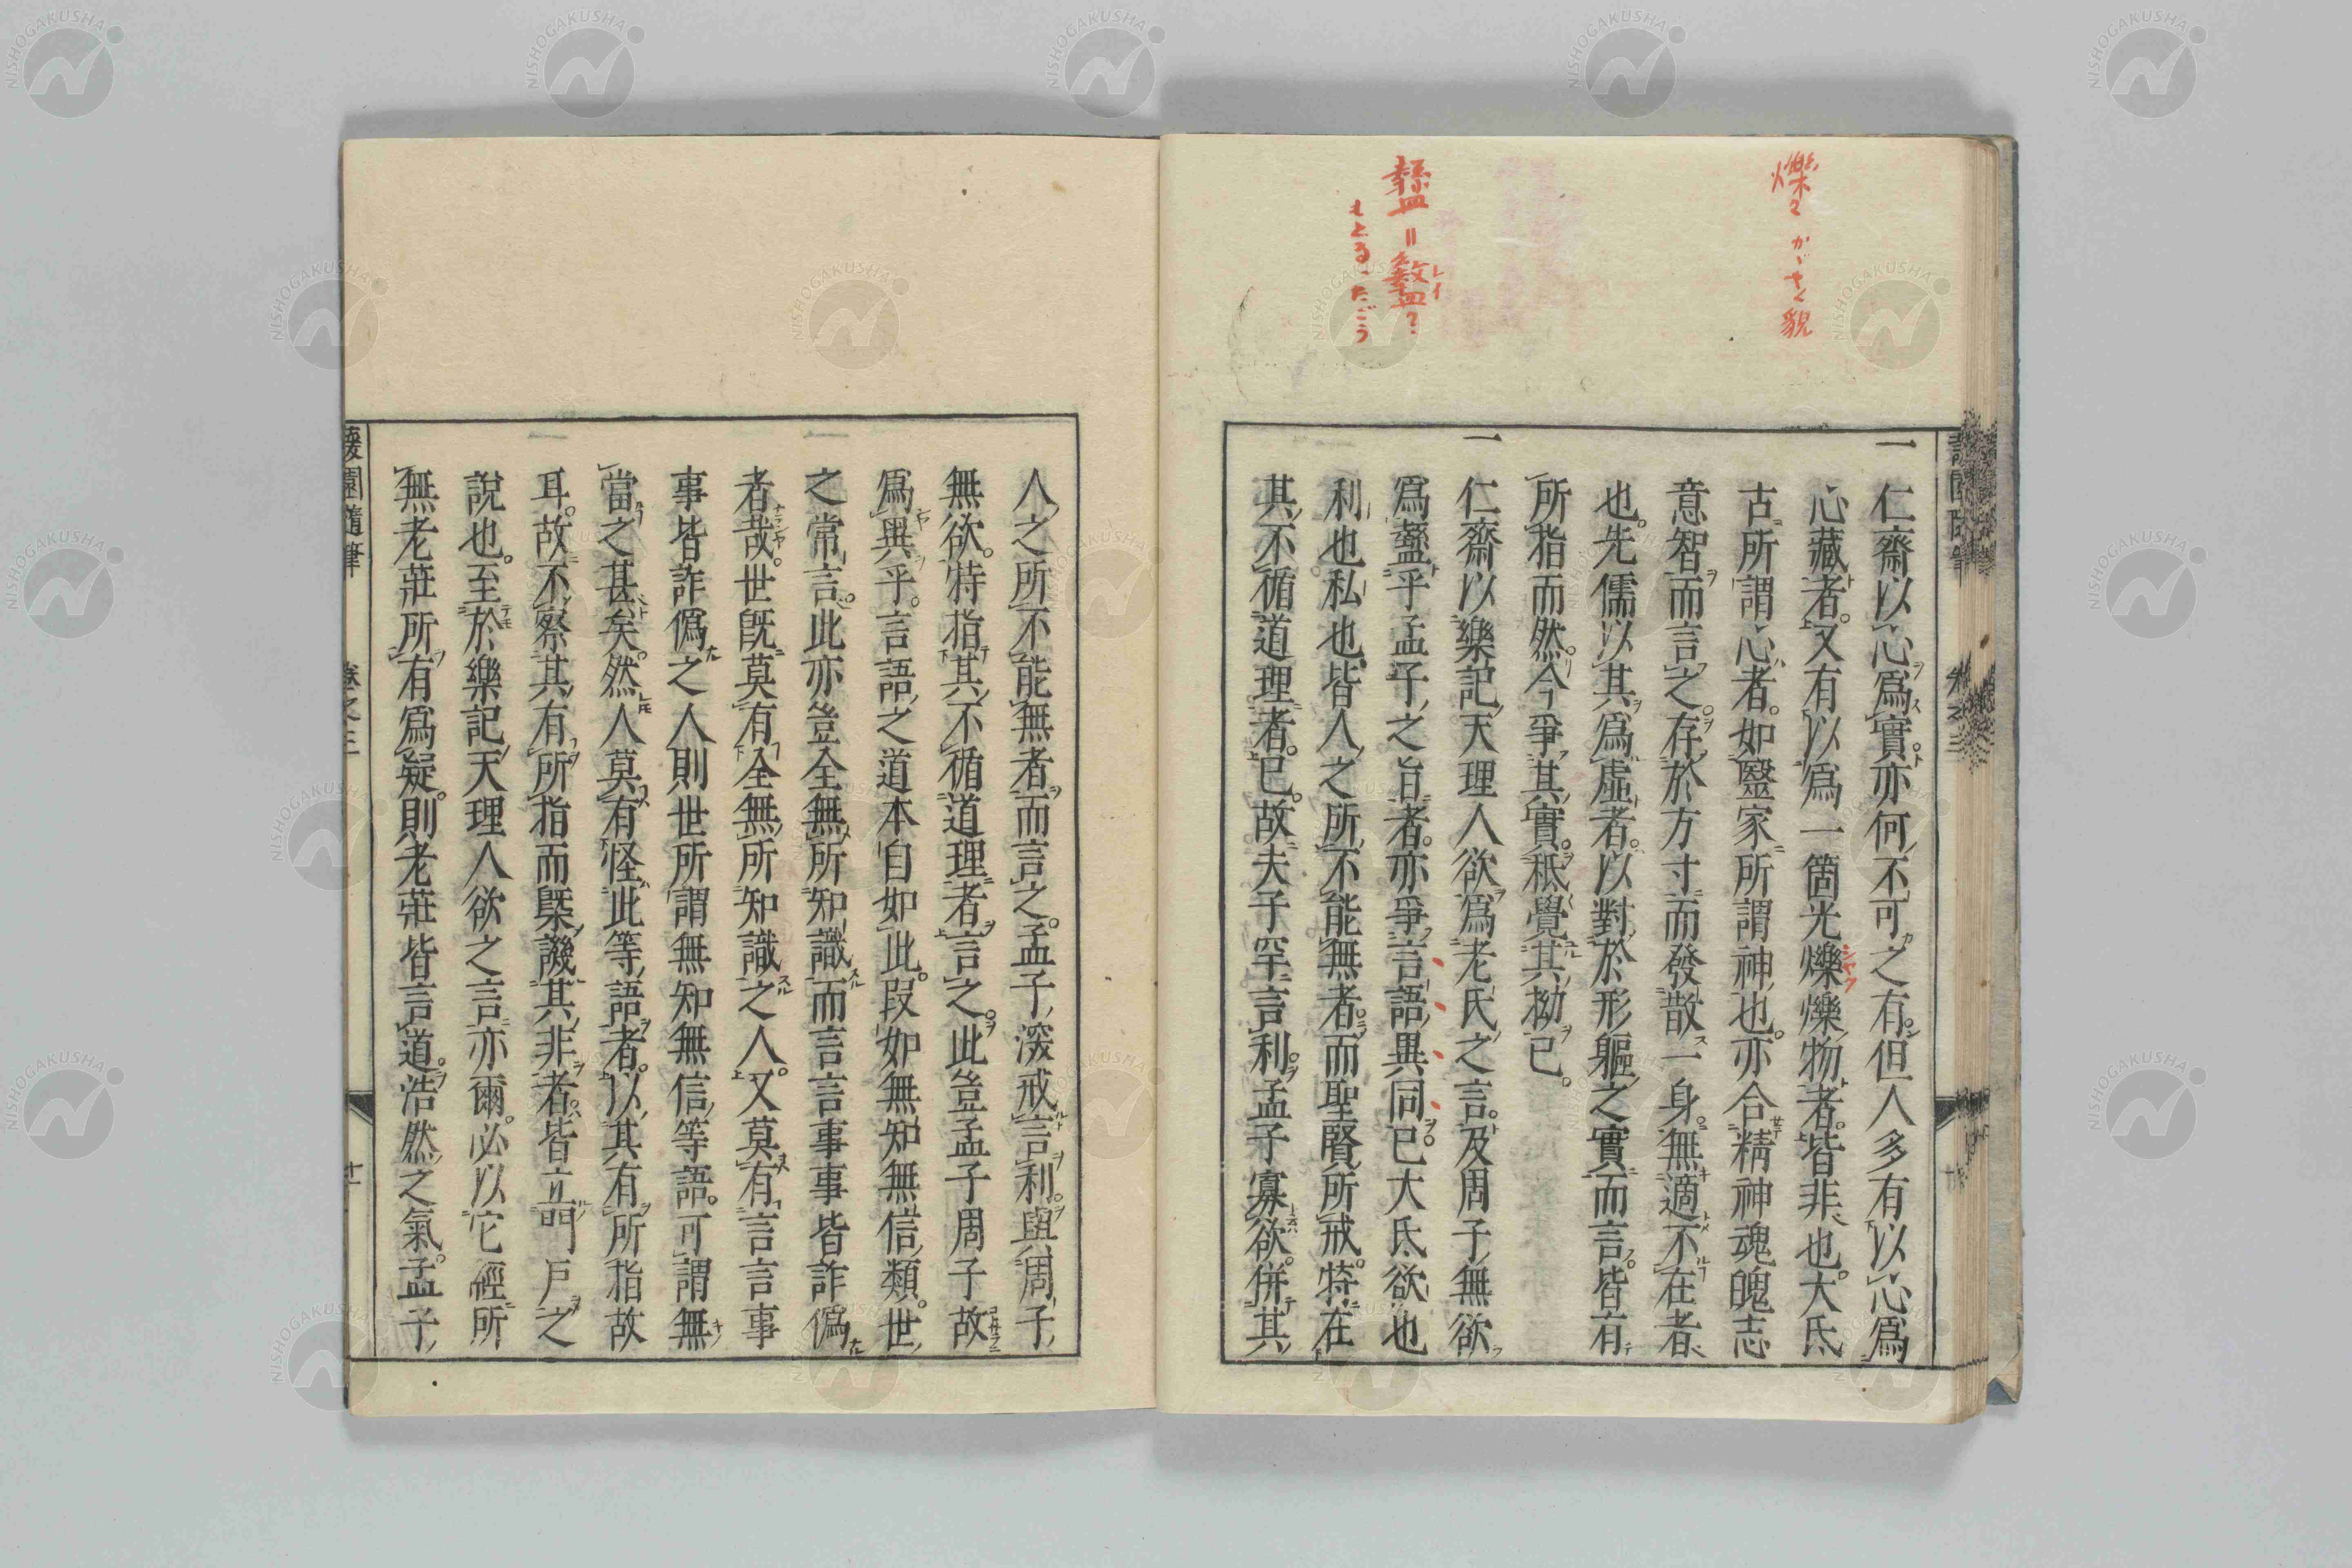 爍々 かがやく貌
盭=盭? レイ
もとる、たごう
一仁齋以心爲實亦何不可之有但人多有以心爲
心藏者又有以爲一箇光爍爍物者皆非也大氐
古所謂心者如醫家所謂神也亦合精神魂魄志
意智而言之存於方寸而發散一身無適不在者
也先儒以其爲虛者以對於形軀之實而言皆有
所指而然今爭其實秪覺其拗已
一仁齋以樂記天理人欲爲老氏之言及周子無欲
爲盭乎孟子之旨者亦爭言語異同已大氐欲也
利也私也皆人之所不能無者而聖賢所戒特在
其不循道理者已故夫子罕言利孟子寡欲併其
人之所不能無者而言之孟子深戒言利與周子
無欲特指其不循道理者言之此豈孟子周子故
爲異乎言語之道本自如此叚如無知無信類世
之常言此亦豈全無所知識而言言事事皆詐僞
者哉世既莫有全無所知識之人又莫有言言事
事皆詐僞之人則世所謂無知無信等語可謂無
當之甚矣然人莫有怪此等語者以其有所指故
耳故不察其有所指而槩譏其非者皆立門戶之
說也至於樂記天理人欲之言亦爾必以它經所
無老莊所有爲疑則老莊皆言道浩然之氣孟子
蘐園隨筆 卷之三 十一
NISHOGAKUSHA